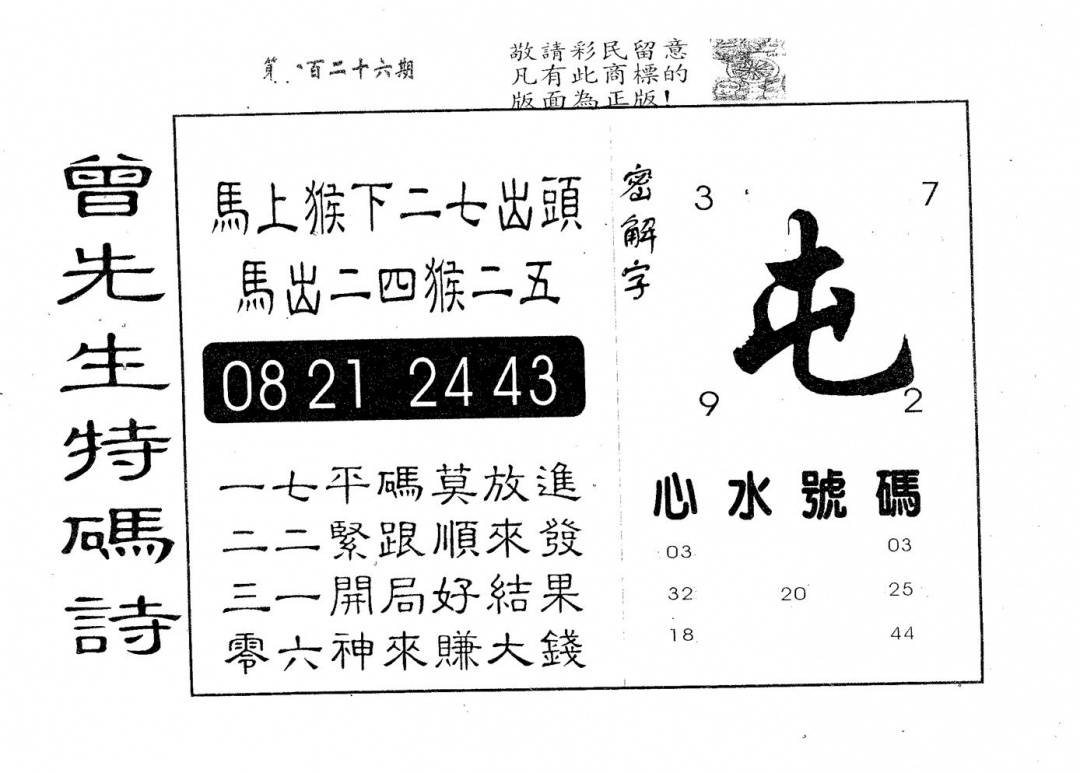 第 百二十六期
敬請彩民留意
凡有此商標的
版面為正版！
曾先生特碼詩
馬上猴下二七出頭
馬出二四猴二五
08 21 24 43
一七平碼莫放進
二二緊跟順來發
三一開局好結果
零六神來賺大錢
密解字
3 7
屯
9 2
心水號碼
03 03
32 20 25
18 44